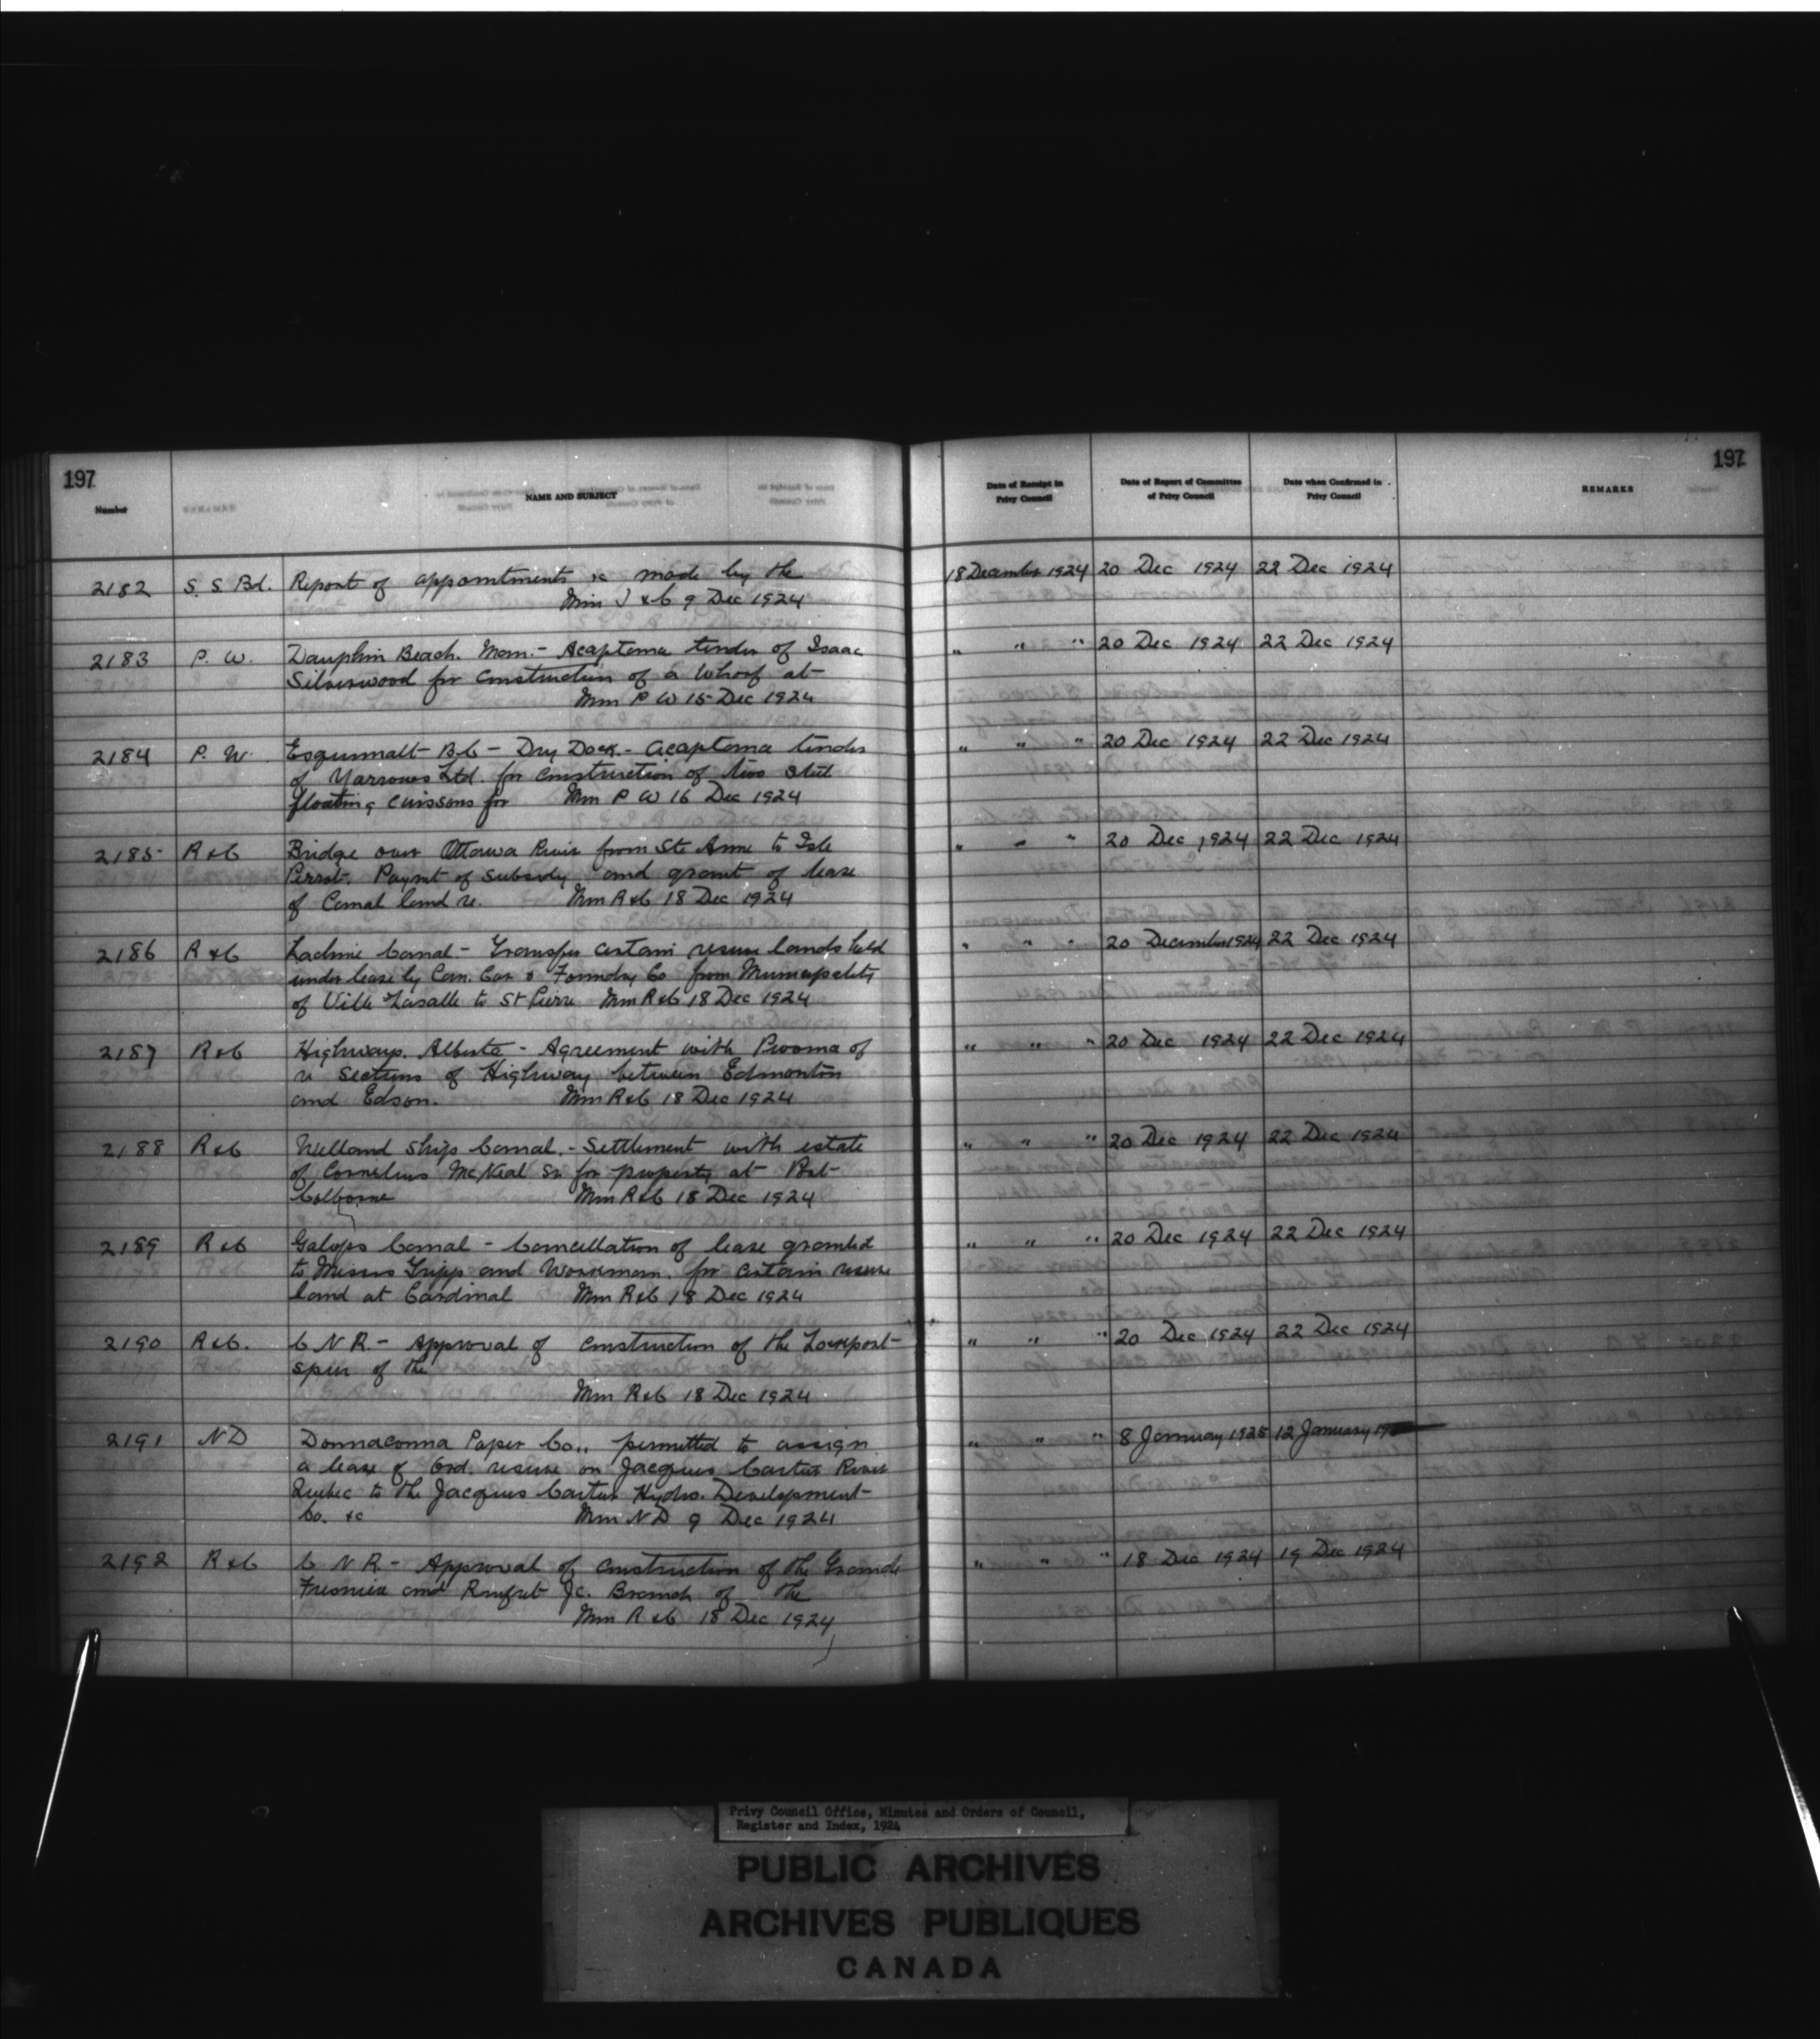 197
197
Number
NAME AND SUBJECT
Date of Receipt in Privy Council
Date of Report of Committee of Privy Council
Date when Confirmed in Privy Council
REMARKS
2182 S. S. Bd. Report of appointments &c made by the 18 December 1924 20 Dec 1924 22 Dec 1924
Min T & C 9 Dec 1924
2183 P. W. Dauphin Beach. Man. - Acceptance tender of Isaac " " " 20 Dec 1924 22 Dec 1924
Silverwood for construction of a Wharf at
Min P W 15 Dec 1924
2184 P. W. Esquimalt B C - Dry Dock - acceptance tender " " " 20 Dec 1924 22 Dec 1924
of Yarrows Ltd. for construction of two steel
floating caissons for Min P W 16 Dec 1924
2185 R & C Bridge over Ottawa River from Ste Anne to Isle " " " 20 Dec 1924 22 Dec 1924
Perrot. Paymt of subsidy and grant of lease
of Canal land re. Min R & C 18 Dec 1924
2186 R & C Lachine Canal - Transfer certain reserve lands held " " " 20 December 1924 22 Dec 1924
under lease by Can. Car & Foundry Co from Municipality
of Ville Lasalle to St Pierre Min R & C 18 Dec 1924
2187 R & C Highways. Alberta - Agreement with Provnce of " " " 20 Dec 1924 22 Dec 1924
re sections of Highway between Edmonton
and Edson. Min R & C 18 Dec 1924
2188 R & C Welland Ship Canal. - Settlement with estate " " " 20 Dec 1924 22 Dec 1924
of Cornelius McNeal Sr for property at Port
Colborne Min R & C 18 Dec 1924
2189 R & C Galops Canal - Cancellation of lease granted " " " 20 Dec 1924 22 Dec 1924
to Messrs Tripp and Workman. for certain reserve
land at Cardinal Min R & C 18 Dec 1924
2190 R & C. C N R. - Approval of construction of the Lockport " " " 20 Dec 1924 22 Dec 1924
spur of the
Min R & C 18 Dec 1924
2191 N D Donnaconna Paper Co.. permitted to assign " " " 8 January 1925 12 January
a lease of Ord. reserve on Jacques Cartier River
Quebec to the Jacques Cartier Hydro. Development
Co. &c Min N D 9 Dec 1924
2192 R & C C N R. - Approval of construction of the Grande " " " 18 Dec 1924 19 Dec 1924
Fresniere and Rinfret Jc. Branch of the
Min R & C 18 Dec 1924
Privy Council Office, Minutes and Orders of Council,
Register and Index, 1924
PUBLIC ARCHIVES
ARCHIVES PUBLIQUES
CANADA